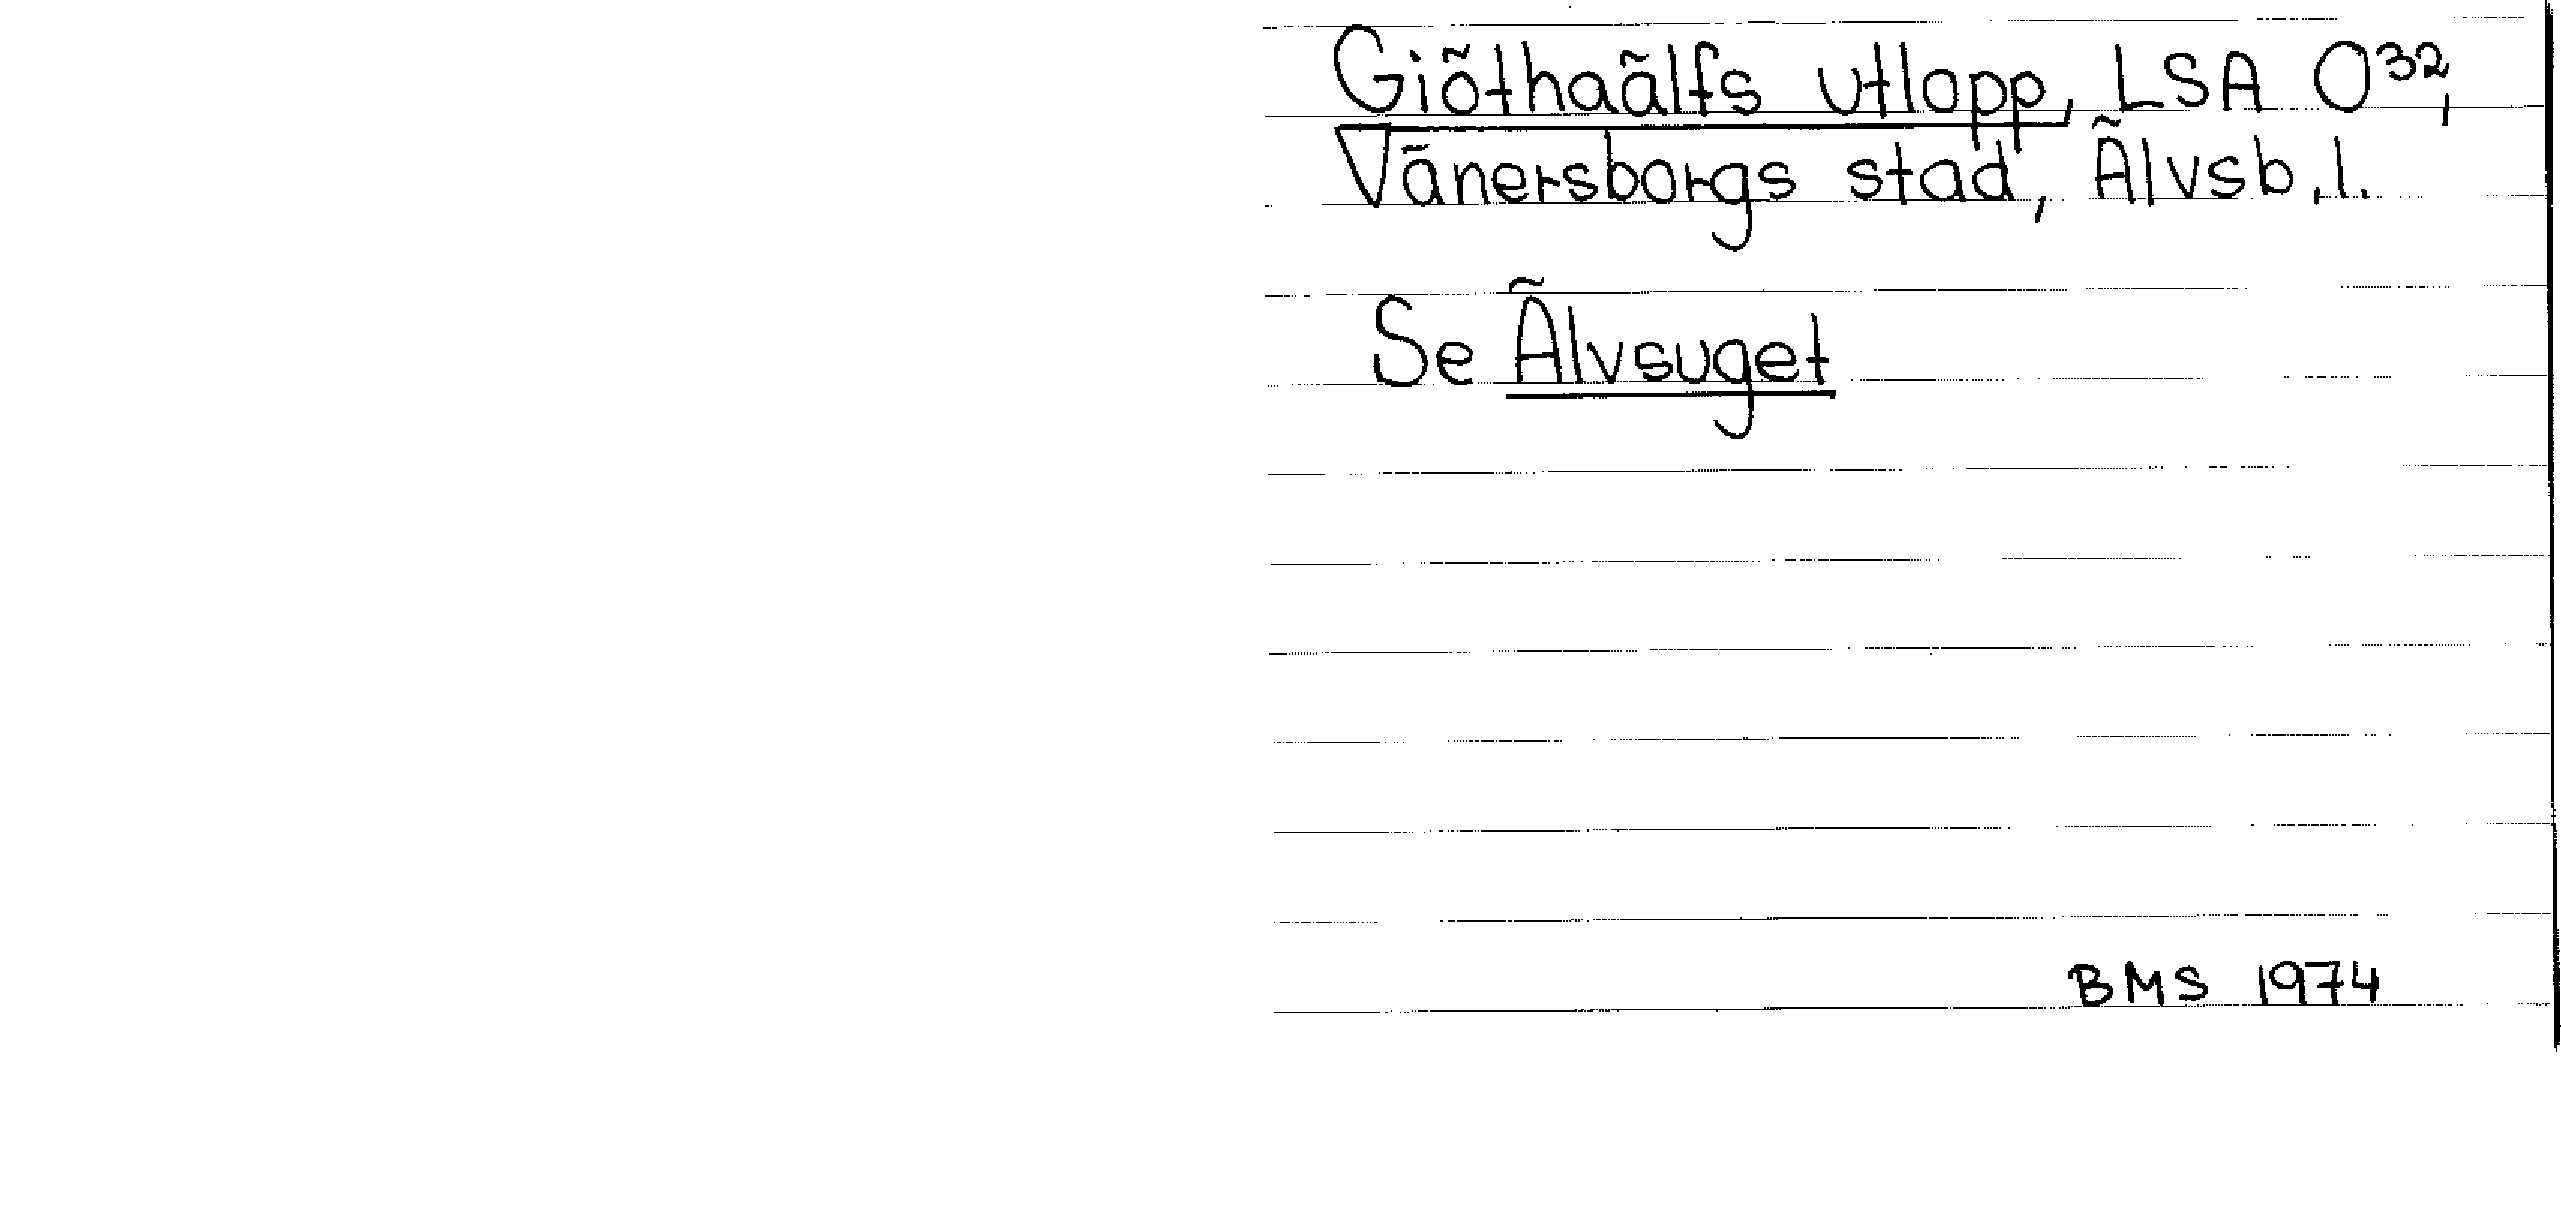 Giöthaälfs utlopp, LSA O³²,
Vänersborgs stad, Älvsb.l.
Se Älvsuget
BMS 1974